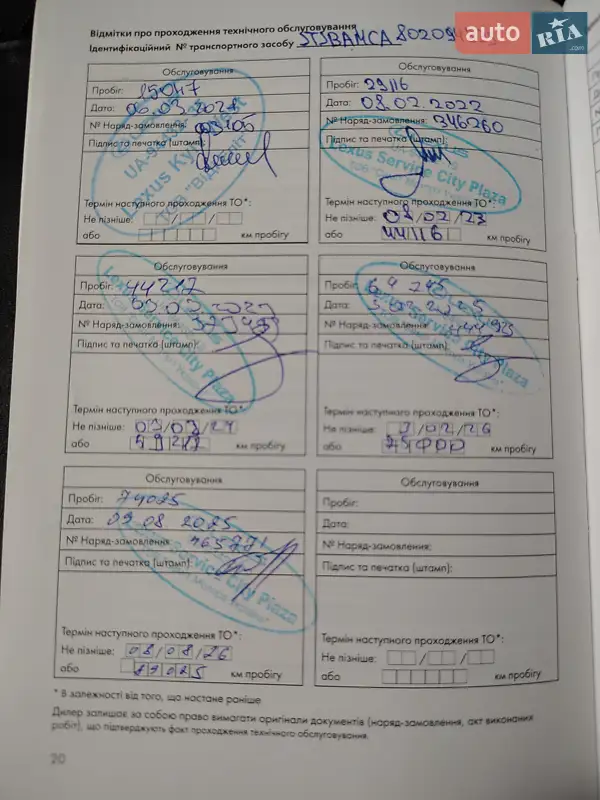 Відмітки про проходження технічного обслуговування
Ідентифікаційний № транспортного засобу
auto RIA .com
Обслуговування
Пробіг: 15047
Дата: 06.03.2021
№ Наряд-замовлення:
Підпис та печатка (штамп):
Lexus Ky
ТОВ "Віді
Термін наступного проходження ТО*:
Не пізніше:
або км пробігу
Обслуговування
Пробіг: 29116
Дата: 08.02.2022
№ Наряд-замовлення: 346260
Підпис та печатка (штамп):
Lexus Service City Plaza
Термін наступного проходження ТО*:
Не пізніше: 08/02/23
або 44116 км пробігу
Обслуговування
Пробіг: 44217
Дата:
№ Наряд-замовлення:
Підпис та печатка (штамп):
City Plaza
Термін наступного проходження ТО*:
Не пізніше: 03/03/24
або 59217 км пробігу
Обслуговування
Пробіг: 64745
Дата:
№ Наряд-замовлення:
Підпис та печатка (штамп):
Lexus Service City Plaza
Термін наступного проходження ТО*:
Не пізніше: 3/02/26
або км пробігу
Обслуговування
Пробіг: 74025
Дата: 09 08 2025
№ Наряд-замовлення: 465771
Підпис та печатка (штамп):
Service City Plaza
Термін наступного проходження ТО*:
Не пізніше: 08/08/26
або 89025 км пробігу
Обслуговування
Пробіг:
Дата:
№ Наряд-замовлення:
Підпис та печатка (штамп):
Термін наступного проходження ТО*:
Не пізніше:
або км пробігу
* В залежності від того, що настане раніше
Дилер залишає за собою право вимагати оригінали документів (наряд-замовлення, акт виконаних
робіт), що підтверджують факт проходження технічного обслуговування.
20